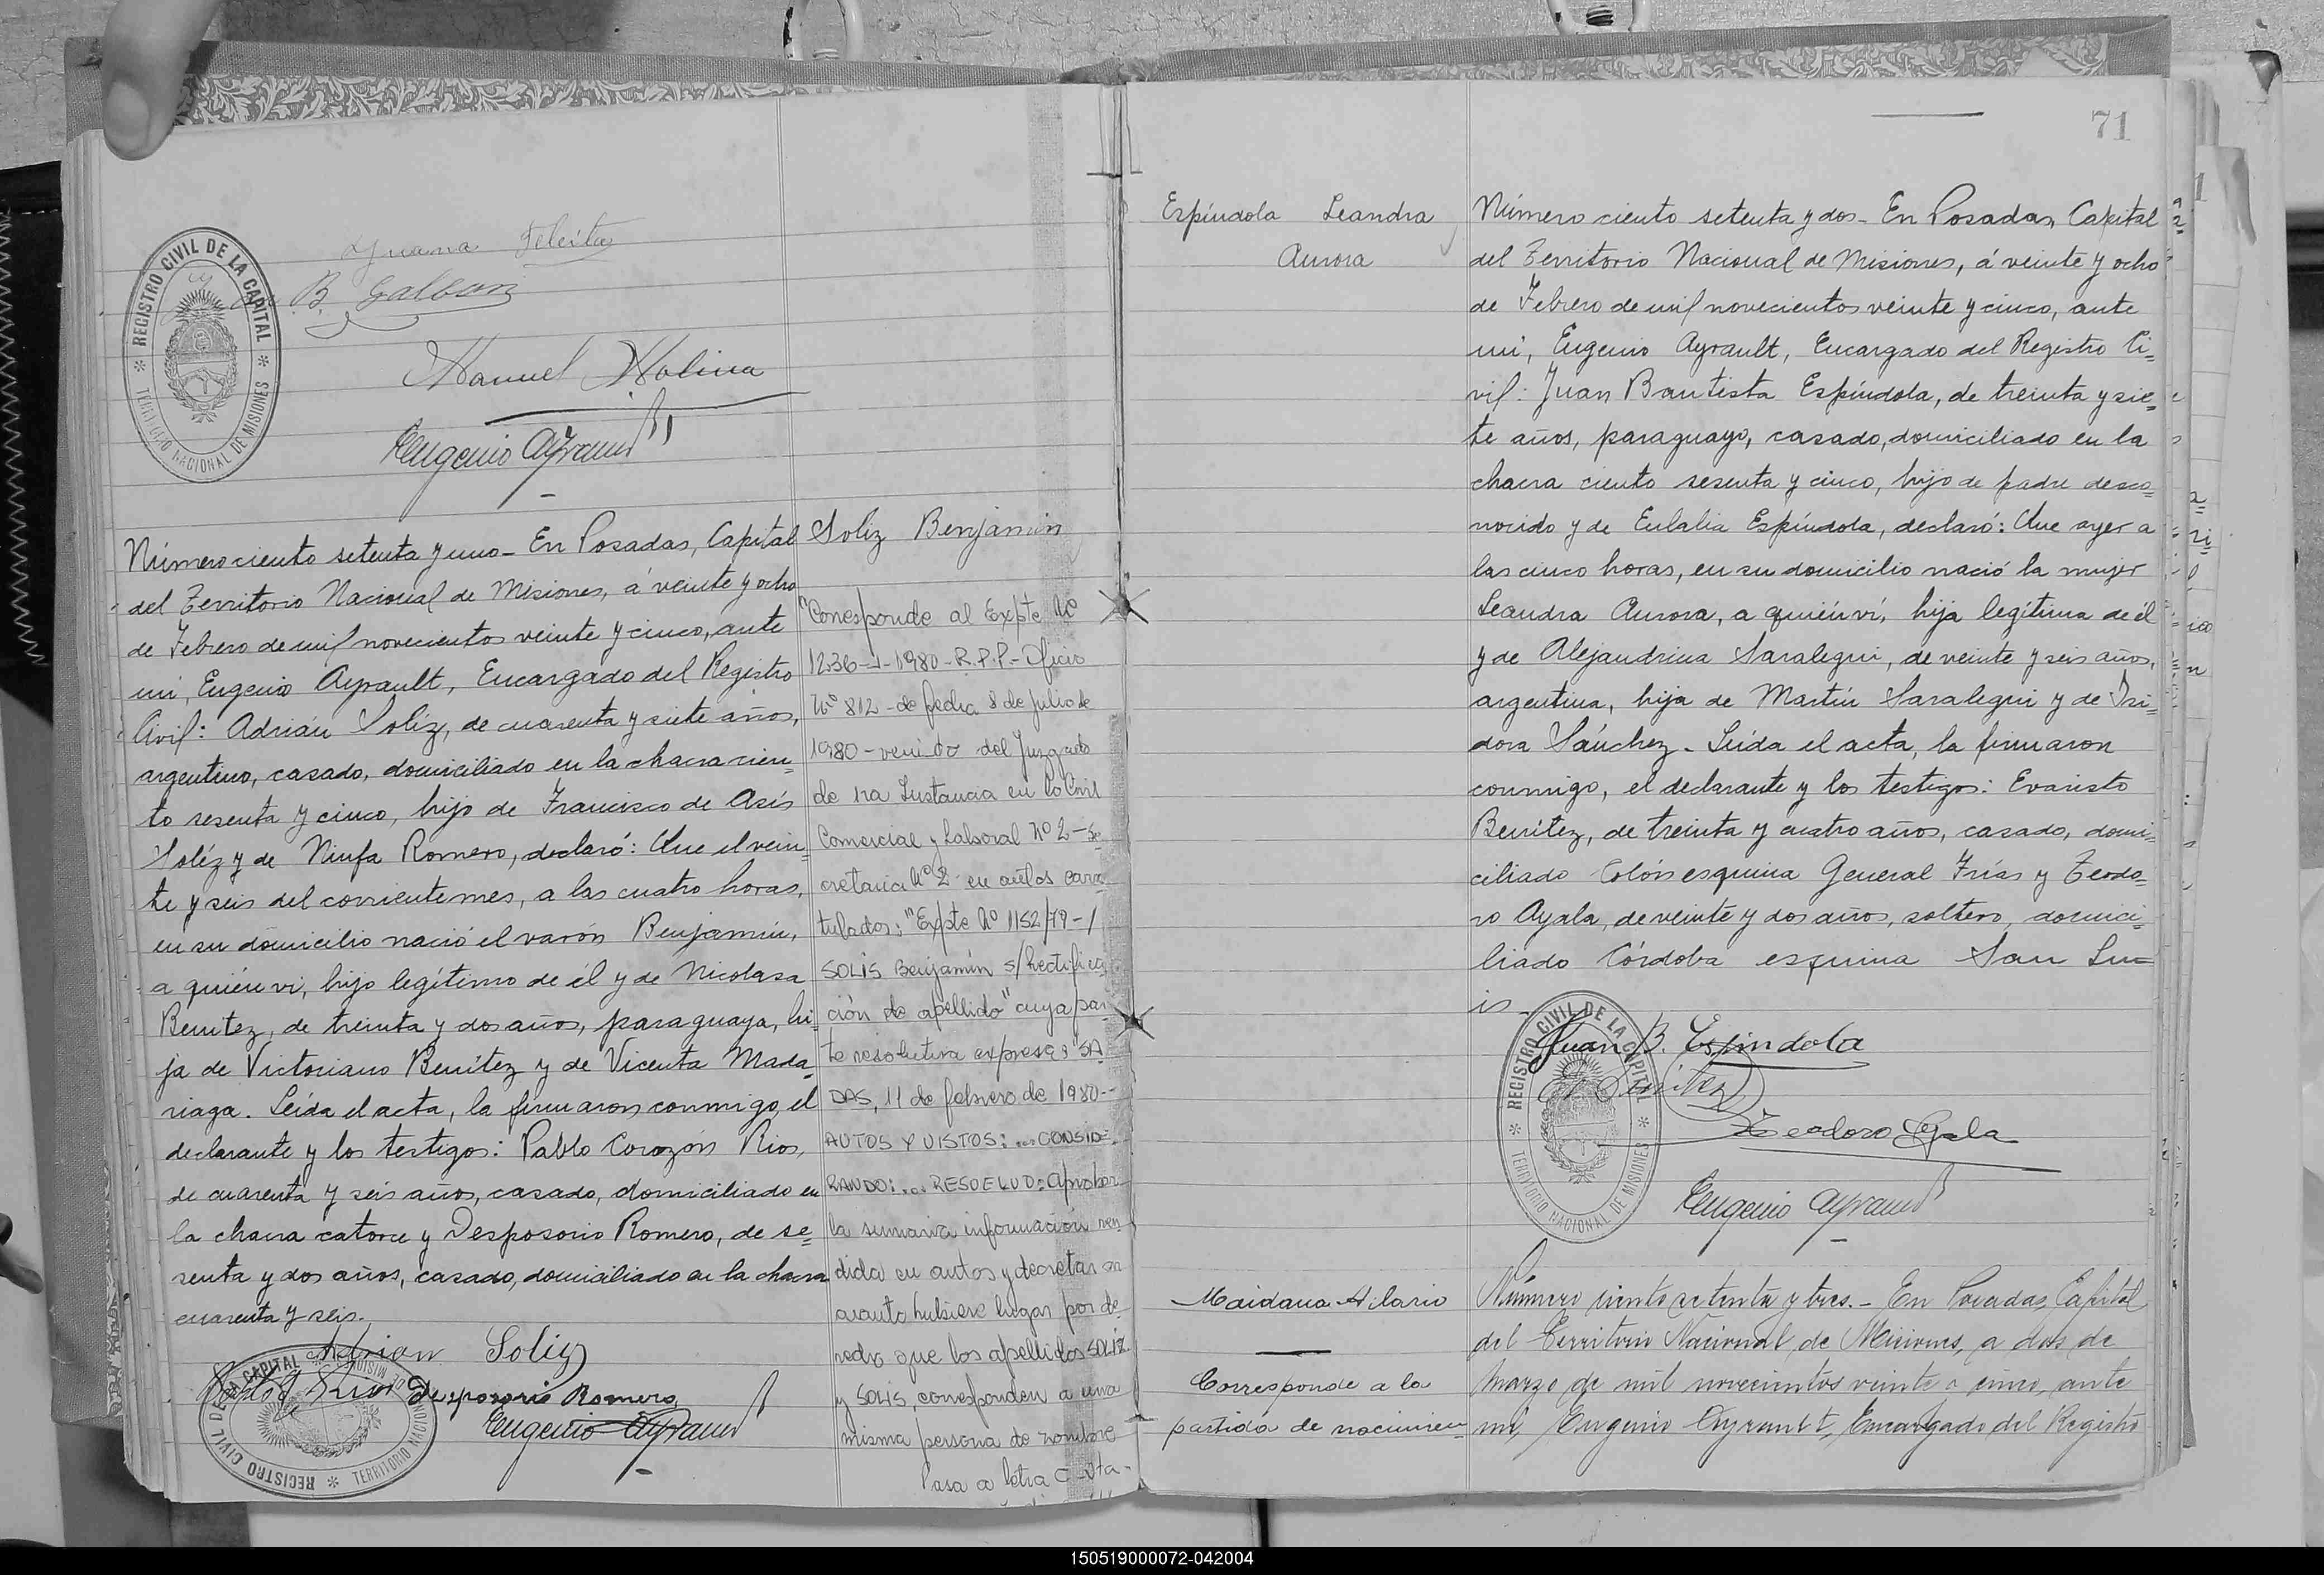 Juana Felcita
B. Galban
Manuel Molina
Eugenio Ayrault
REGISTRO CIVIL DE LA CAPITAL
TERRITORIO NACIONAL DE MISIONES
Número ciento setenta y uno - En Posadas, Capital
del Territorio Nacional de Misiones, á veinte y ocho
de Febrero de mil novecientos veinte y cinco, ante
mí, Eugenio Ayrault, Encargado del Registro
Civil: Adrián Solíz, de cuarenta y siete años,
argentino, casado, domiciliado en la chacra cien-
to sesenta y cinco, hijo de Francisco de Asís
Solíz y de Ninfa Romero, declaró: Que el vein-
te y seis del corriente mes, a las cuatro horas,
en su domicilio nació el varón Benjamín,
a quién vi, hijo legítimo de él y de Nicolasa
Benítez, de treinta y dos años, paraguaya, hi-
ja de Victoriano Benítez y de Vicenta Mada-
riaga. Leída el acta, la firmaron conmigo, el
declarante y los testigos: Pablo Corazón Rios,
de cuarenta y seis años, casado, domiciliado en
la chacra catorce y Desposorio Romero, de se-
senta y dos años, casado, domiciliado en la chacra
cuarenta y seis.
Adrian Soliz
Desposorio Romero
Eugenio Ayrault
REGISTRO CIVIL DE LA CAPITAL
TERRITORIO NACIONAL DE MISIONES
Soliz Benjamin
"Corresponde al Expte Nº
1236-J-1980-R.P.P.- Oficio
Nº 812 - de fecha 8 de julio de
1980 - venido del Juzgado
de 1ra Instancia en lo Civil
Comercial y Laboral Nº 2 - Se-
cretaria Nº 2 en autos cara-
tulados: "Expte Nº 1152/79 - /
SOLIS Benjamín s/Rectifica-
ción de apellido" cuya par-
te resolutiva expresa: "SA
DAS, 11 de febrero de 1980--
AUTOS Y VISTOS:... CONSIDE-
RANDO:... RESUELVO: Aprobar
la sumaria información ren-
dida en autos y decretar en
cuanto hubiere lugar por de-
recho que los apellidos SOLIZ
y SOLIS, corresponden a una
misma persona de nombre
Pasa a letra C - Vta -
71
Espíndola Leandra
Aurora
Número ciento setenta y dos - En Posadas, Capital
del Territorio Nacional de Misiones, á veinte y ocho
de Febrero de mil novecientos veinte y cinco, ante
mí, Eugenio Ayrault, Encargado del Registro Ci-
vil: Juan Bautista Espíndola, de treinta y sie-
te años, paraguayo, casado, domiciliado en la
chacra ciento sesenta y cinco, hijo de padre desco-
nocido y de Eulalia Espíndola, declaró: Que ayer a
las cinco horas, en su domicilio nació la mujer
Leandra Aurora, a quién vi, hija legítima de él
y de Alejandrina Saralegui, de veinte y seis años,
argentina, hija de Martín Saralegui y de Isi-
dora Sánchez. Leída el acta, la firmaron
conmigo, el declarante y los testigos: Evaristo
Benítez, de treinta y cuatro años, casado, domi-
ciliado Colón esquina General Frías y Teodo-
ro Ayala, de veinte y dos años, soltero, domici-
liado Córdoba esquina San Lu-
is -
Juan B. Espindola
E Benitez
Teodoro Ayala
Eugenio Ayrault
REGISTRO CIVIL DE LA CAPITAL
TERRITORIO NACIONAL DE MISIONES
Maidana Hilario
Corresponde a la
partida de nacimien-
Número ciento setenta y tres. - En Posadas, Capital
del Territorio Nacional de Misiones, a dos de
Marzo de mil novecientos veinte y cinco, ante
mí, Eugenio Ayrault, Encargado del Registro
150519000072-042004